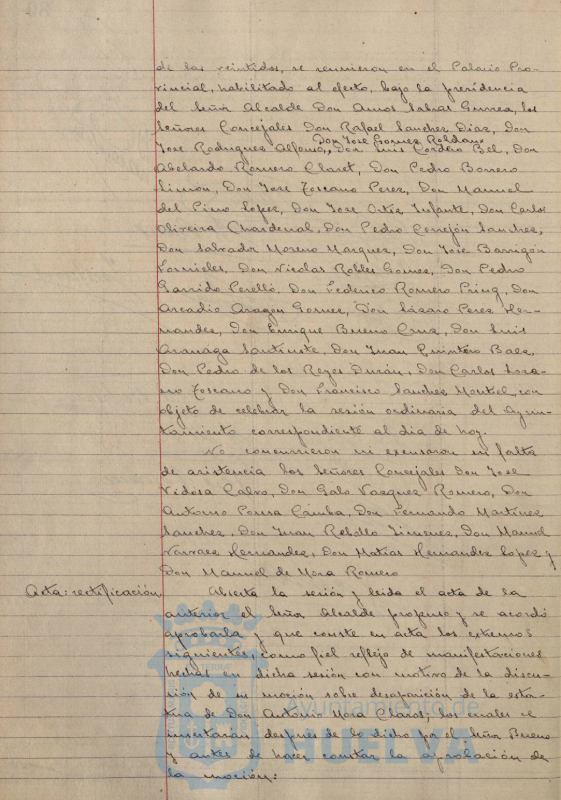 de las veintidos, se reunieron en el Palacio Pro-
vincial, habilitado al efecto, bajo la presidencia
del Señor Alcalde Don Amos Sabras Gurrea, los
Señores Concejales Don Rafael Sanchez Diaz, Don
Don José Gomez Roldan
Jose Rodriguez Alfonso, Don Luis Cordero Bel, Don
Abelardo Romero Claret, Don Pedro Borrero
Limon, Don Jose Toscano Perez, Don Manuel
del Pino Lopez, Don Jose Ortiz Infante, Don Carlos
Oliveira Chardenal, Don Pedro Cerrejón Sanchez,
Don Salvador Moreno Marquez, Don Jose Barrigón
Fornieles, Don Nicolas Robles Gomez, Don Pedro
Garrido Perelló, Don Federico Romero Pring, Don
Arcadio Aragon Gomez, Don Lázaro Perez Her-
nandez, Don Enrique Bueno Cruz, Don Luis
Don Juan Quintero Baez,
Don Pedro de los Reyes Durán, Don Carlos Loza-
no Toscano y Don Francisco Sanchez con
objeto de celebrar la sesión ordinaria del Ayun-
tamiento correspondiente al dia de hoy.
No concurrieron ni excusaron su falta
de asistencia los Señores Concejales Don Jose
Vidosa Calvo, Don Galo Vazquez Romero, Don
Antonio Pousa Camba, Don Fernando Martinez
Sanchez, Don Juan Rebollo Jimenez, Don Manuel
Narvaez Hernandez, Don Matias Hernandez Lopez y
Don Manuel de Mora Romero
Acta: rectificación. Abierta la sesión y leida el acta de la
anterior el Señor Alcalde propuso y se acordó
aprobarla y que conste en acta los extremos
siguientes, como fiel reflejo de manifestaciones
hechas en dicha sesión con motivo de la discu-
sión de su moción sobre desaparición de la esta-
tua de Don Antonio Mora Claros; los cuales se
insertarán después de lo dicho por el Señor Bueno
y antes de hacer constar la aprobación de
la moción:
Ayuntamiento de
HUELVA